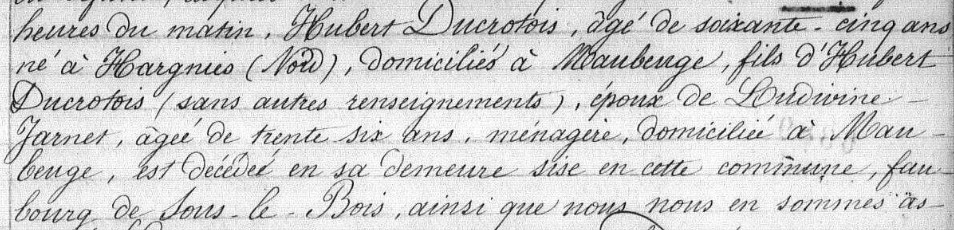 heures du matin, Hubert Ducrotois, âgé de soixante-cinq ans
né à Hargnies (Nord), domicilié à Maubeuge, fils d'Hubert
Ducrotois (sans autres renseignements), époux de Ludivine
Jarnet, âgée de trente six ans, ménagère, domiciliée à Mau-
beuge, est décédé en sa demeure sise en cette commune, fau-
bourg de Sous-le-Bois, ainsi que nous nous en sommes as-